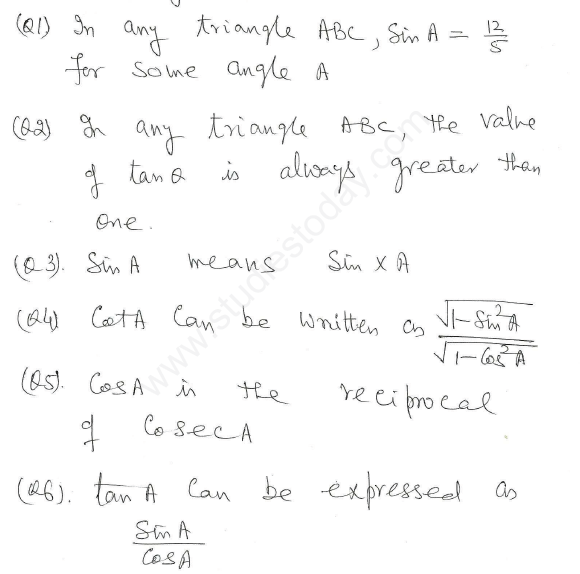 (Q1) In any triangle ABC, Sin A = 12/5
for some angle A
(Q2) In any triangle ABC, the value
of tan Q is always greater than
one.
(Q3). Sin A means Sin x A
(Q4) Cot A Can be written as √(1-Sin²A)/√(1-Cos²A)
(Q5). Cos A is the reciprocal
of Cosec A
(Q6). tan A Can be expressed as
Sin A/Cos A
www.studiestoday.com